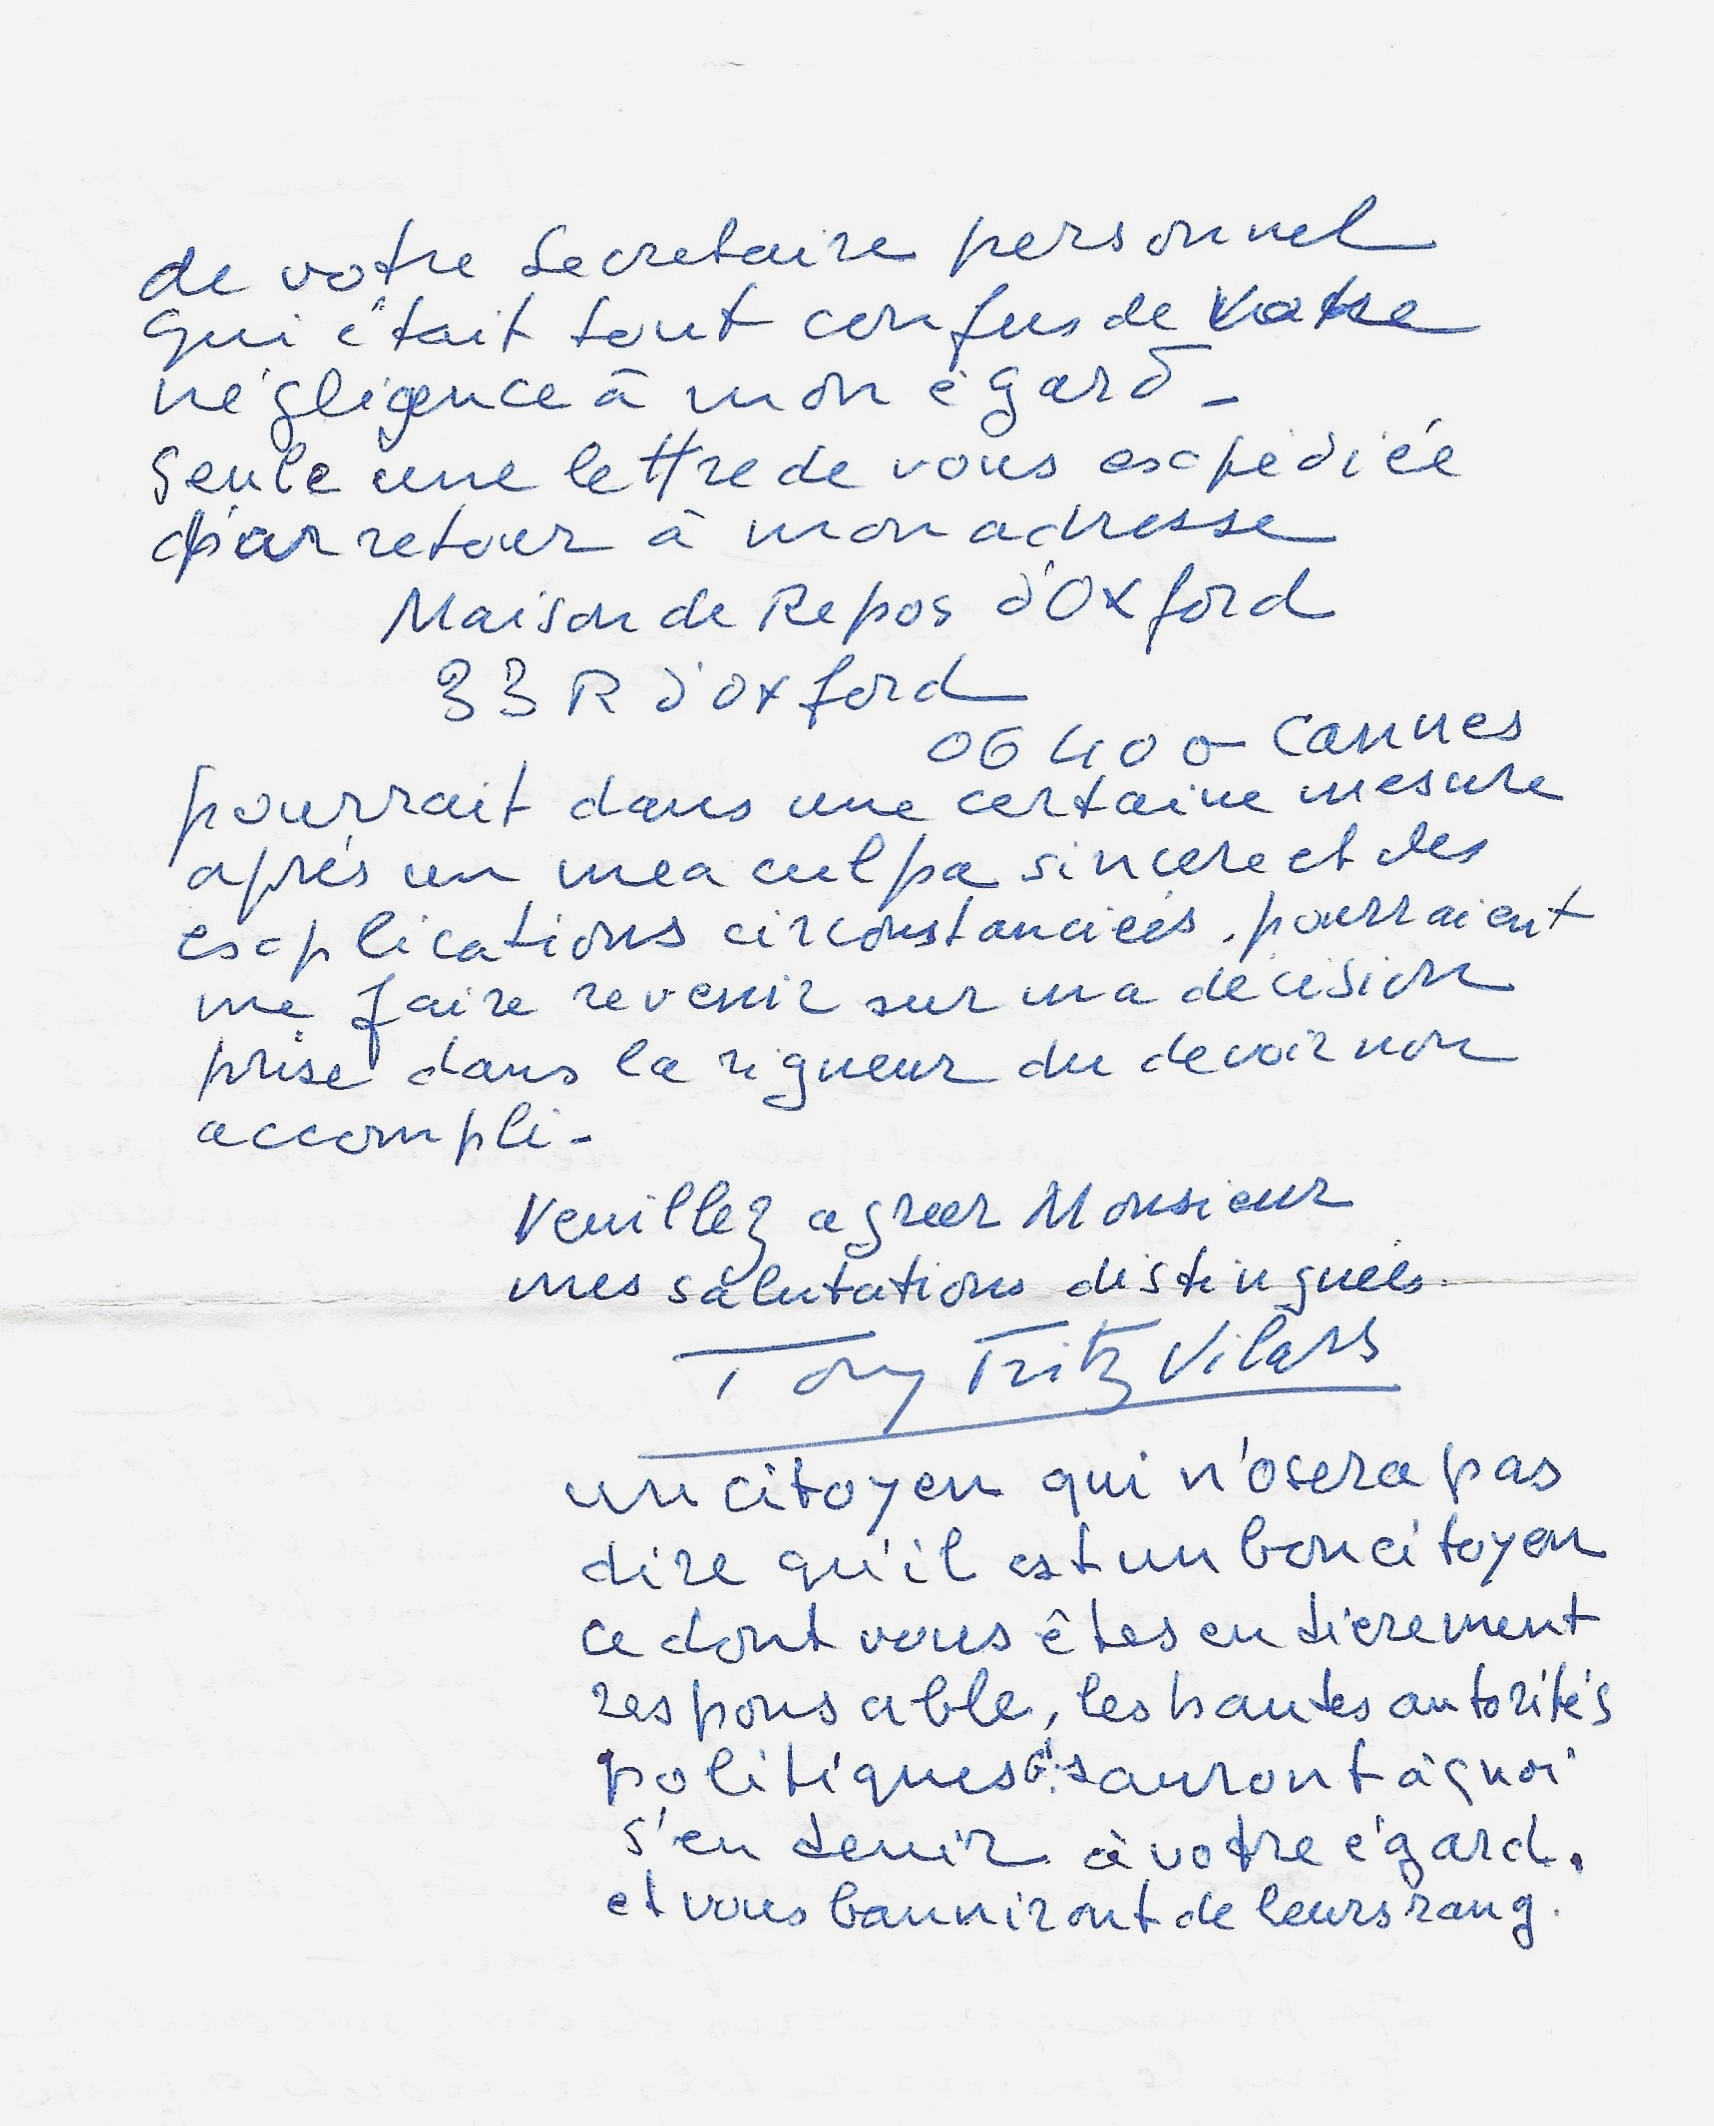 de votre Secretaire personnel
qui était tout confus de votre
négligence à mon égard -
Seule une lettre de vous expédiée
par retour à mon adresse
Maison de Repos d'Oxford
33 R d'Oxford
06400 Cannes
pourrait dans une certaine mesure
après un mea culpa sincere et des
explications circonstanciées, pourraient
me faire revenir sur ma décision
prise dans la rigueur du devoir non
accompli -
Veuillez agreer Monsieur
mes salutations distinguées.
Tony Fritz Vilars
un citoyen qui n'osera pas
dire qu'il est un bon citoyen
ce dont vous êtes entierement
responsable, les hautes autorités
politiques sauront à quoi
s'en tenir à votre égard.
et vous banniront de leurs rang.